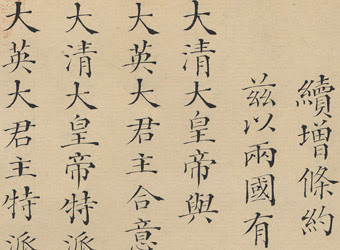 續增條約
茲以兩國有
大清大皇帝與
大英大君主合意
大清大皇帝特派
大英大君主特派